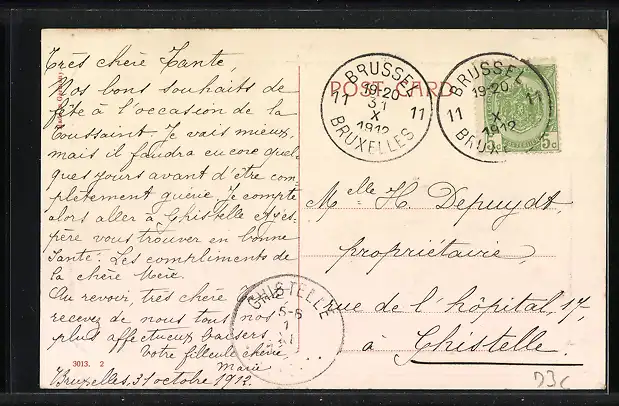 Très chère Tante,
Nos bons souhaits de
fête à l'occasion de la
Toussaint. Je vais mieux,
mais il faudra encore quel-
ques jours avant d'être com-
plètement guérie. Je compte
alors aller à Ghistelle & j'es-
père vous trouver en bonne
santé. Les compliments de
la chère Mère.
Au revoir, très chère
recevez de nous tous nos
plus affectueux baisers
Votre filleule chérie,
Marie
Bruxelles, 31 octobre 1912.
3013. 2
POST CARD
BRUSSEL
19-20
11 31 11
X
1912
BRUXELLES
BRUSSEL
19-20
11 11
X
1912
BRUX
5c 5c
Melle H. Depuydt,
propriétaire,
rue de l'hôpital, 17,
à Ghistelle.
GHISTELLE
5-6
1
D3C